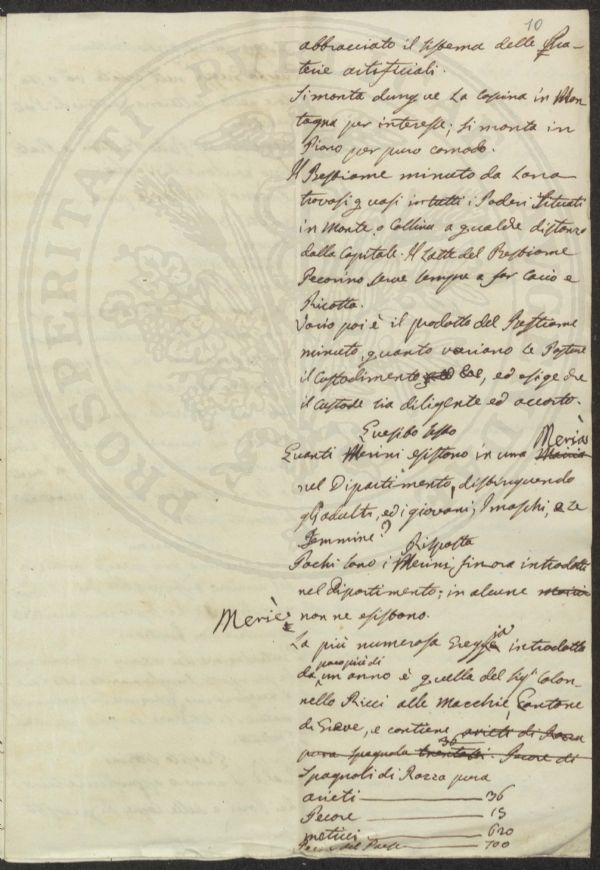 10
abbracciato il sistema delle Pra-
terie artificiali.
Si monta dunque la Cascina in Mon-
tagna per interesse; si monta in
Piano per puro comodo.
Il Bestiame minuto da Lana
trovasi quasi in tutti i Poderi situati
in Monte, o Collina a qualche distanza
dalla Capitale. Il Latte del Bestiame
Pecorino serve sempre a far Cacio e
Ricotta.
Vario poi è il prodotto del Bestiame
minuto, quanto variano le Pasture
il Custodimento, ed esige che
il Custode sia diligente ed accorto.
Quesito Sesto
Quanti Merini esistono in una Meriè
nel Dipartimento, distinguendo
gli adulti, ed i giovani, i maschi, e le
Femmine?
Risposta
Pochi sono i Merini finora introdotti
nel Dipartimento; in alcune
Meriès non ne esistono.
La più numerosa Greggia introdotta
da poco più di un anno è quella del Sigr. Colon-
nello Ricci alle Macchie, Cantone
di Greve, e contiene arieti di Razza
pura spagnola trentasei 36 Pecore di
Spagnoli di Razza pura
arieti — 36
Pecore — 15
meticci — 620
Pecore del Paese — 100